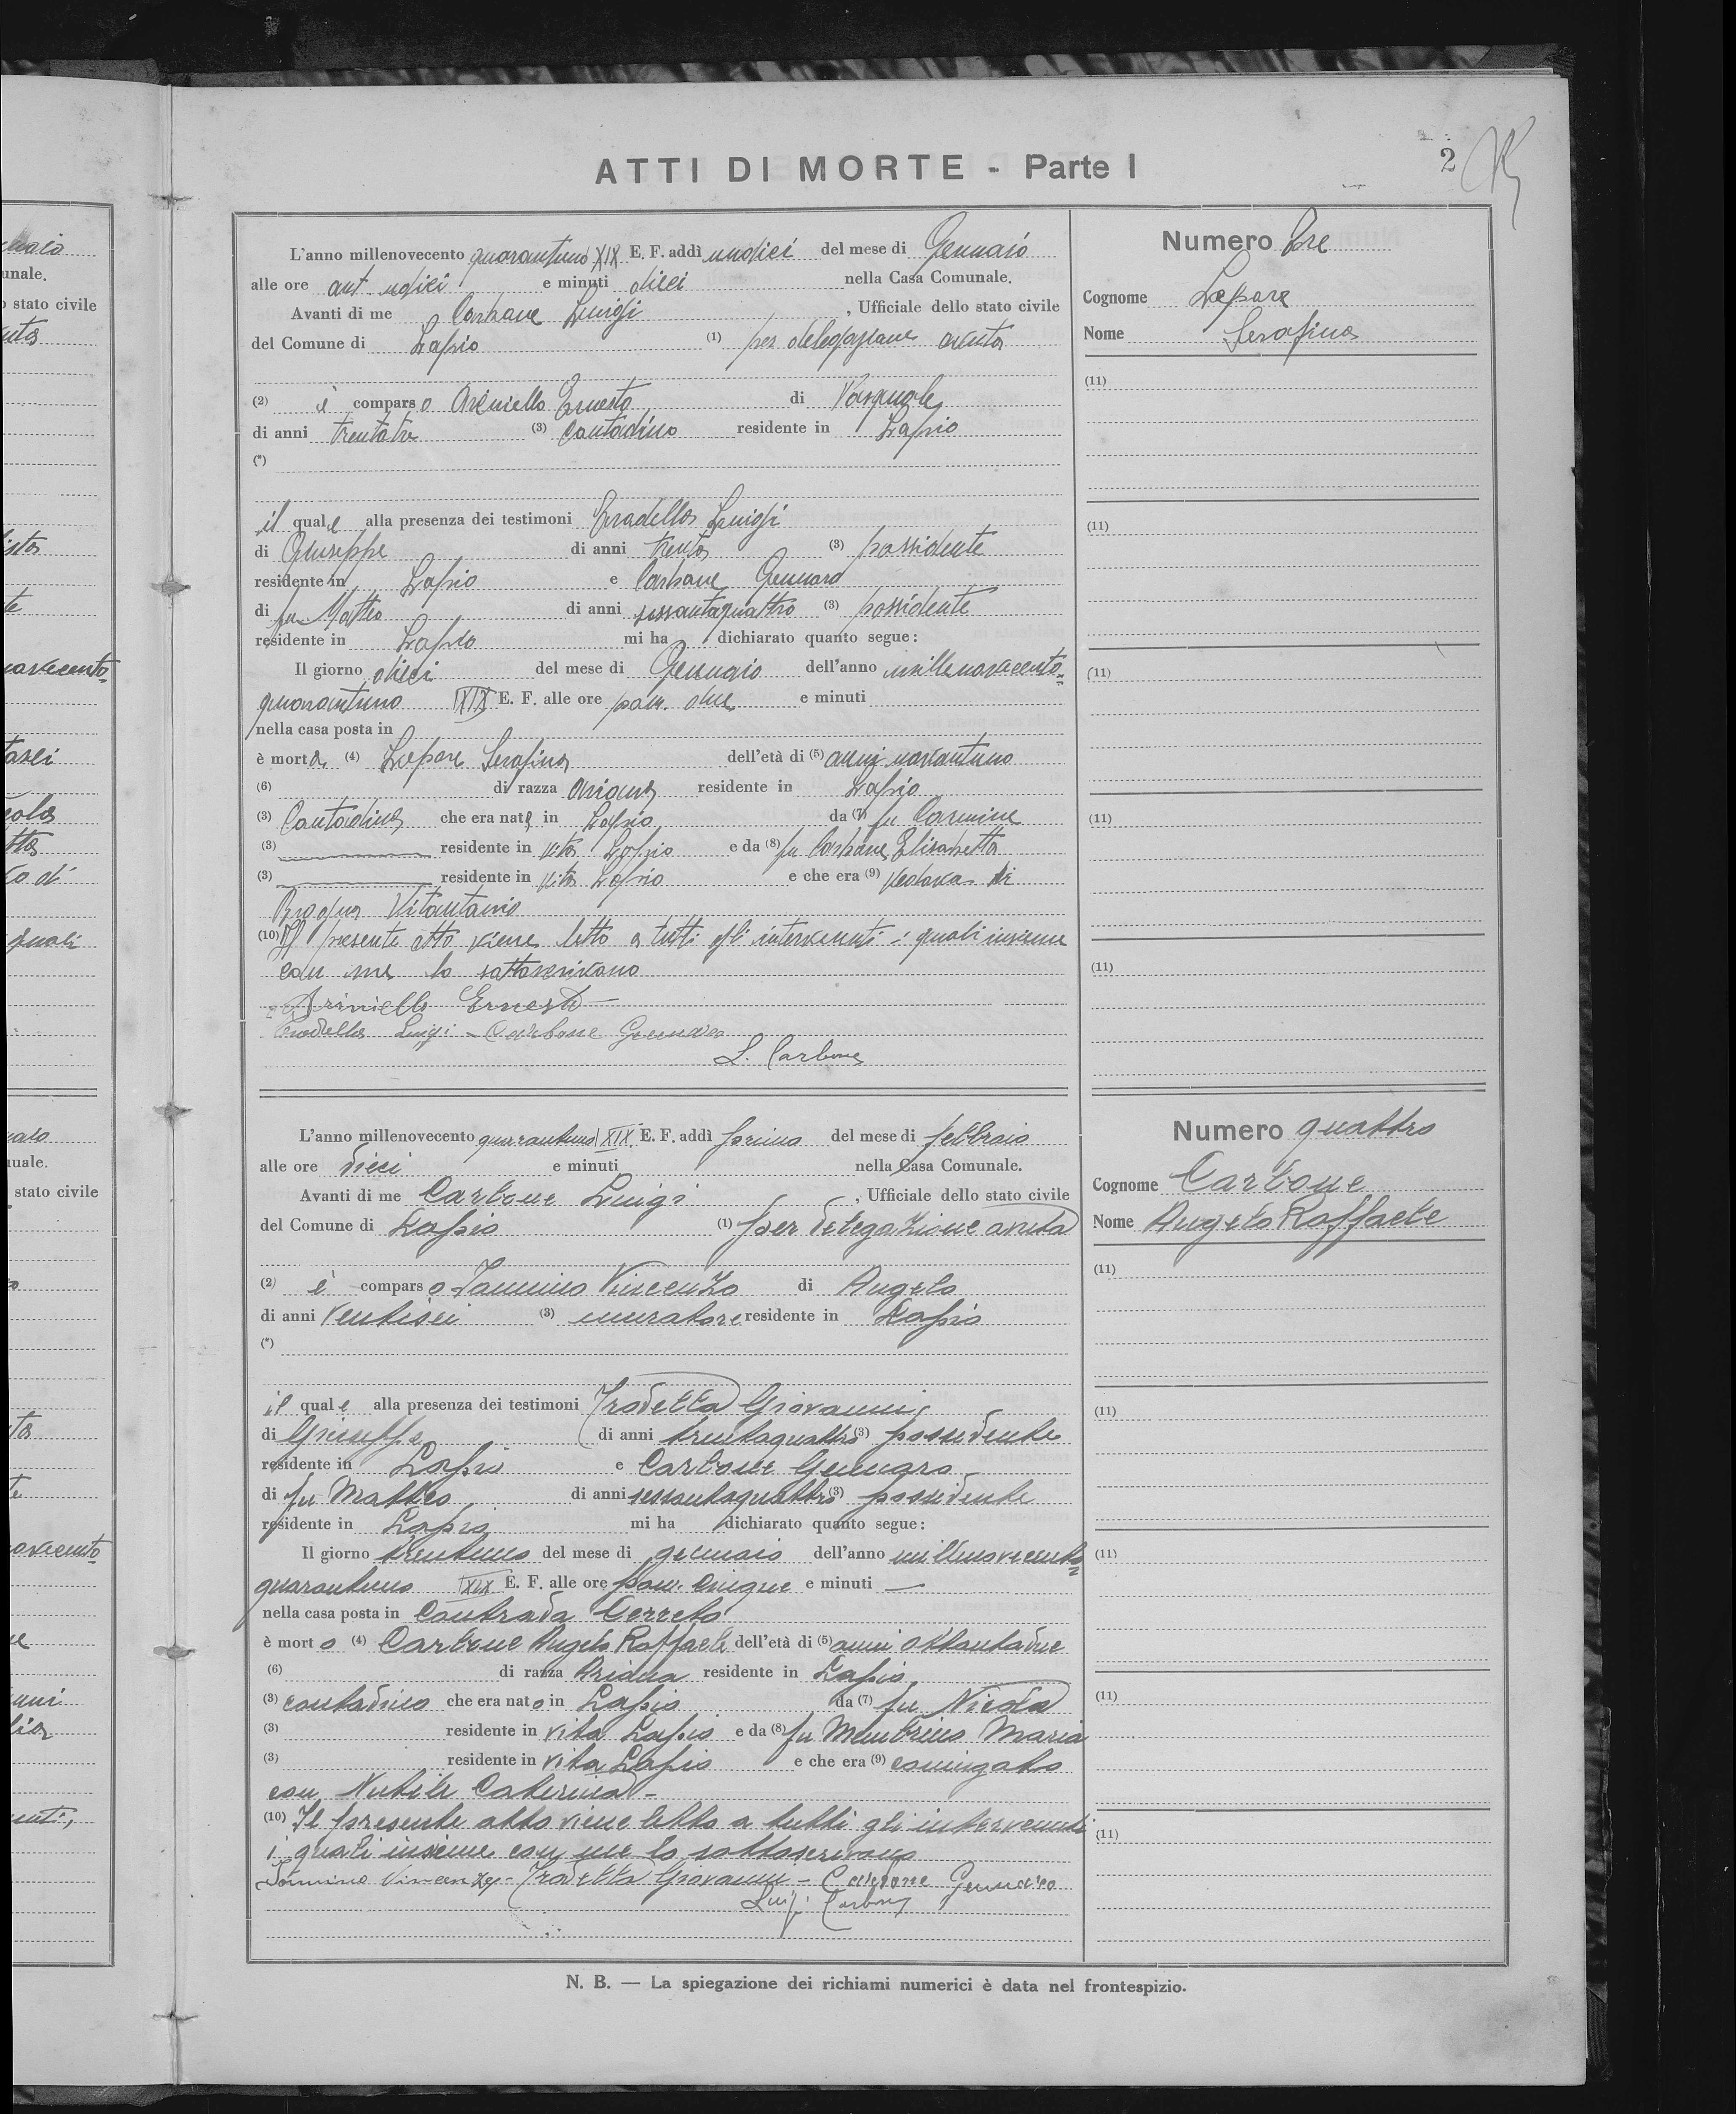 ATTI DI MORTE - Parte I
2
Numero Tre
Cognome Lepore
Nome Serafina
L'anno millenovecento quarantuno XIX E. F. addì undici del mese di Gennaio
alle ore ant. undici e minuti dieci nella Casa Comunale.
Avanti di me Carbone Luigi, Ufficiale dello stato civile
del Comune di Lapio (1) per delegazione avuta
(2) è comparso Ariniello Ernesto di Pasquale
di anni trentatre (3) Contadino residente in Lapio
(*)
il quale alla presenza dei testimoni Trodella Luigi
di Giuseppe di anni trenta (3) possidente
residente in Lapio e Carbone Gennaro
di fu Matteo di anni sessantaquattro (3) possidente
residente in Lapio mi ha dichiarato quanto segue:
Il giorno dieci del mese di Gennaio dell'anno millenovecento=
quarantuno XIX E. F. alle ore pom. due e minuti
nella casa posta in
è morta (4) Lepore Serafina dell'età di (5) anni novantuno
(6) di razza ariana residente in Lapio
(3) Contadina che era nata in Lapio da (7) fu Carmine
(3) residente in vita Lapio e da (8) fu Carbone Elisabetta
(3) residente in vita Lapio e che era (9) vedova di
Vitantonio
(10) Il presente atto viene letto a tutti gli intervenuti i quali insieme
con me lo sottoscrivono
Ariniello Ernesto
Trodella Luigi - Carbone Gennaro
L. Carbone
Numero quattro
Cognome Carbone
Nome Angelo Raffaele
L'anno millenovecento quarantuno XIX E. F. addì primo del mese di febbraio
alle ore dieci e minuti nella Casa Comunale.
Avanti di me Carbone Luigi, Ufficiale dello stato civile
del Comune di Lapio (1) per delegazione avuta
(2) è comparso Iannino Vincenzo di Angelo
di anni ventisei (3) muratore residente in Lapio
(*)
il quale alla presenza dei testimoni Trodella Giovanni
di Giuseppe di anni trentaquattro (3) possidente
residente in Lapio e Carbone Gennaro
di fu Matteo di anni sessantaquattro (3) possidente
residente in Lapio mi ha dichiarato quanto segue:
Il giorno trentuno del mese di gennaio dell'anno millenovecento=
quarantuno XIX E. F. alle ore pom. cinque e minuti —
nella casa posta in Contrada Cerreto
è morto (4) Carbone Angelo Raffaele dell'età di (5) anni ottantadue
(6) di razza Ariana residente in Lapio
(3) contadino che era nato in Lapio da (7) fu Nicola
(3) residente in vita Lapio e da (8) fu Maria
(3) residente in vita Lapio e che era (9) coniugato
con Nubile Caterina -
(10) Il presente atto viene letto a tutti gli intervenuti
i quali insieme con me lo sottoscrivono
Iannino Vincenzo - Trodella Giovanni - Carbone Gennaro
Luigi Carbone
(11)
(11)
(11)
(11)
(11)
(11)
(11)
(11)
(11)
(11)
N. B. — La spiegazione dei richiami numerici è data nel frontespizio.